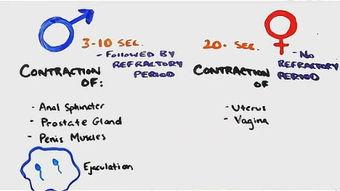 3-10 SEC.
- FOLLOWED BY
REFRACTORY
PERIOD
CONTRACTION
OF:
- Anal Sphincter
- Prostate Gland
- Penis Muscles
Ejaculation
20- SEC.
- NO
REFRACTORY
PERIOD
CONTRACTION
OF
- Uterus
- Vagina